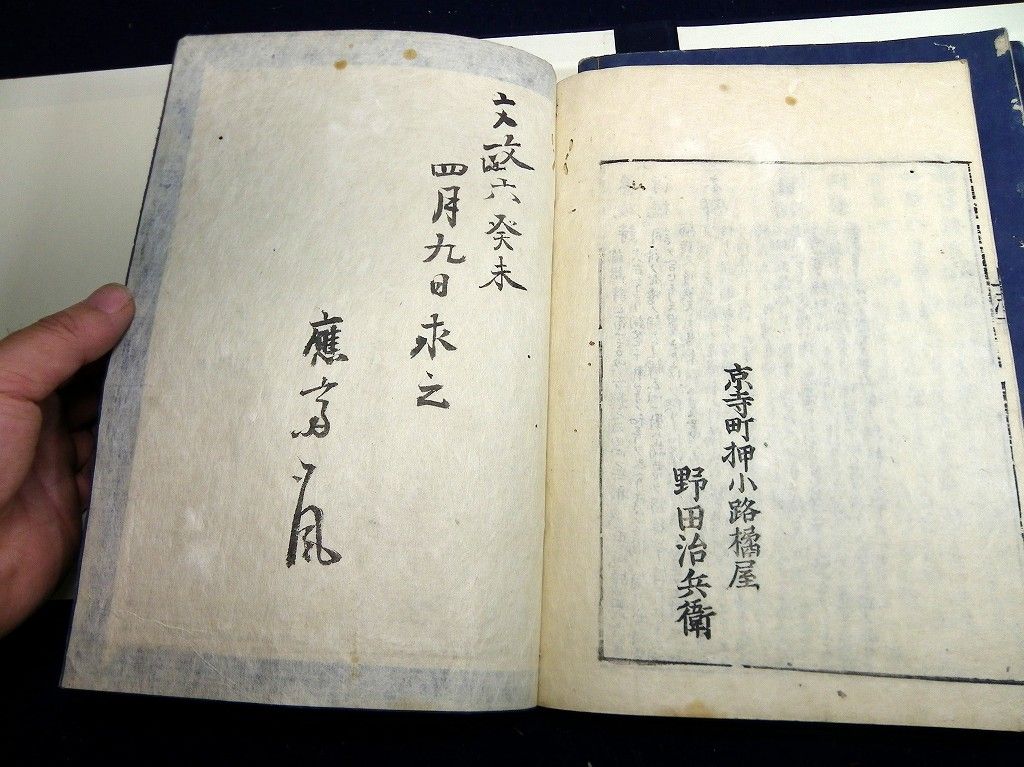 京寺町押小路橘屋
野田治兵衛
文政六癸未
四月九日求之
應